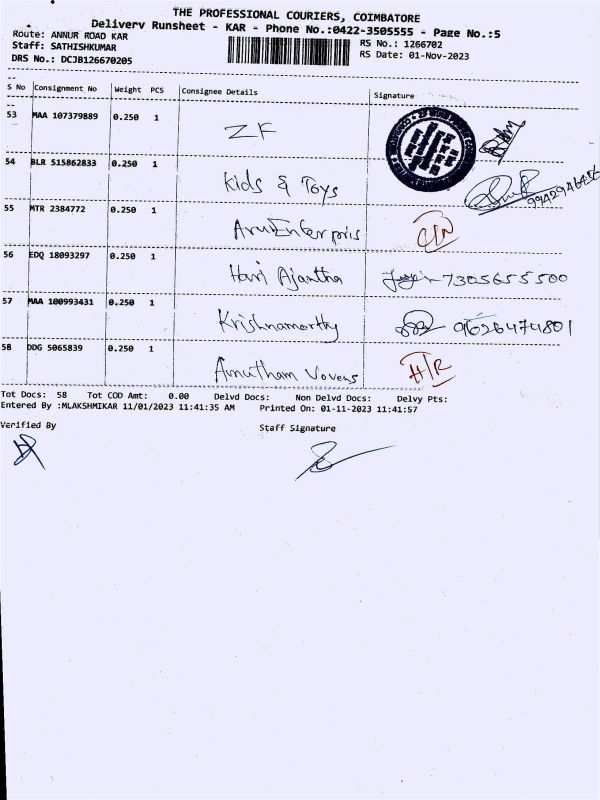 THE PROFESSIONAL COURIERS, COIMBATORE
Delivery Runsheet - KAR - Phone No.:0422-3505555 - Page No.:5
Route: ANNUR ROAD KAR
RS No.: 1266702
Staff: SATHISHKUMAR
RS Date: 01-Nov-2023
DRS No.: DCJB126670205
S No Consignment No Weight PCS Consignee Details Signature
53 MAA 107379889 0.250 1
ZF
54 BLR 515862833 0.250 1
Kids & Toys
55 MTR 2384772 0.250 1
ArulEnterpris
56 EDQ 18093297 0.250 1
Hari Ajantha 7305655500
57 MAA 100993431 0.250 1
Krishnamorthy 9626474801
58 DDG 5065839 0.250 1
Amutham Vovens
Tot Docs: 58 Tot COD Amt: 0.00 Delvd Docs: Non Delvd Docs: Delvy Pts:
Entered By :MLAKSHMIKAR 11/01/2023 11:41:35 AM Printed On: 01-11-2023 11:41:57
Verified By Staff Signature